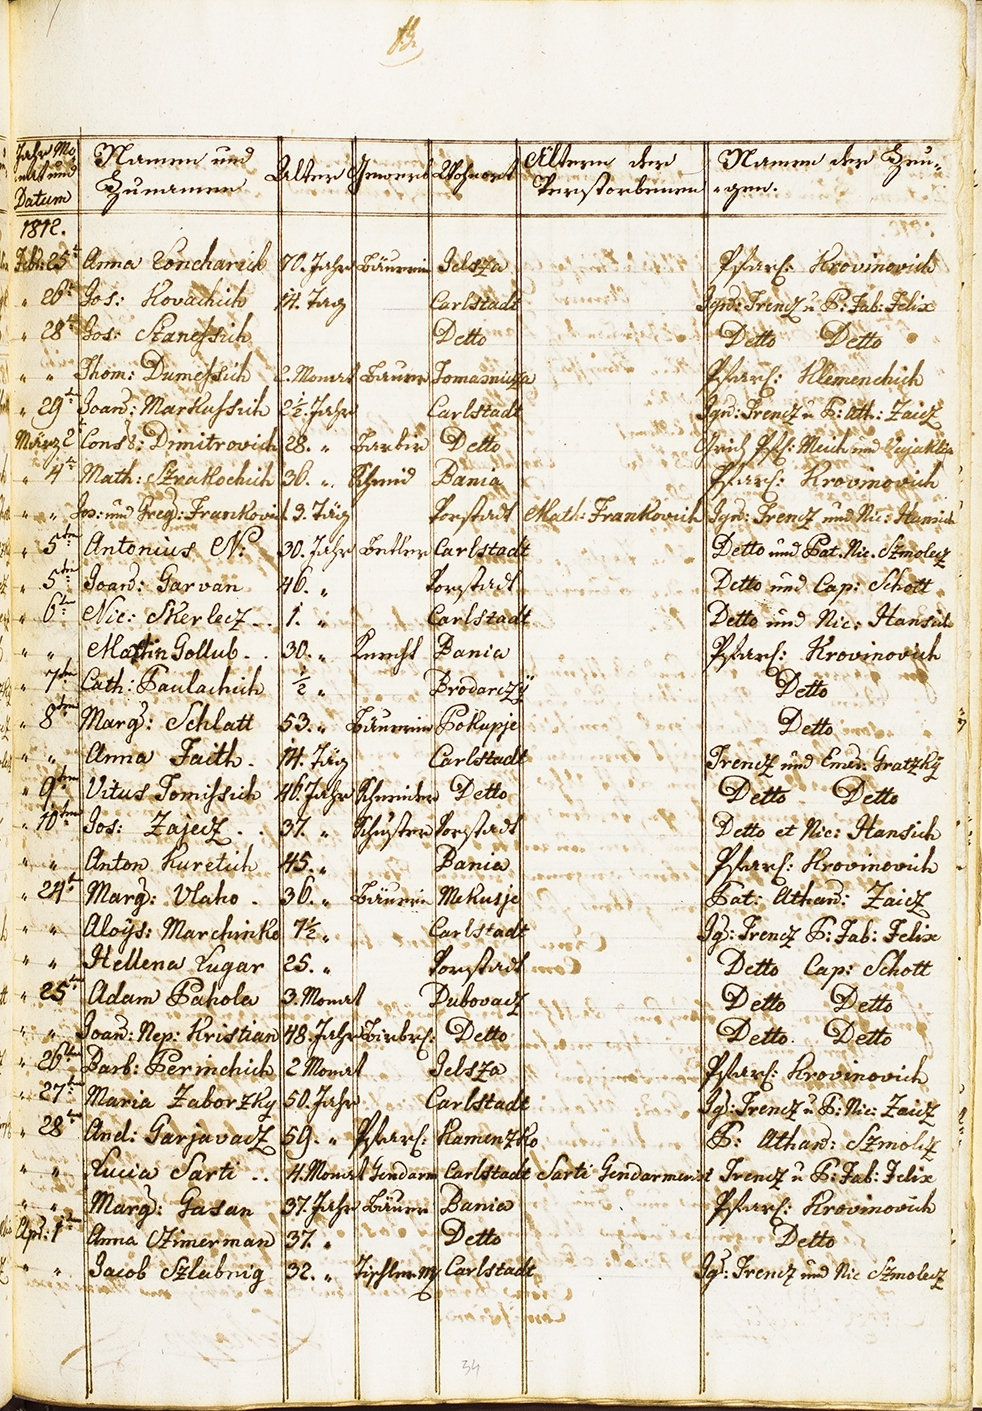 Jahr Mo-
nat und
Datum
Namen und
Zunamen
Alter
Gewerb
Wohnort
Ältern der
Verstorbenen
Namen der Zeu-
gen.
1812.
Feb: 25t Anna Concharich 70. Jahr Bäuerin Jelsza Pfarr: Krovinovich
" 26t Jos: Kovachich 14. Tag Carlstadt Ign: Trencz u P: Fab: Felix
" 28t Jos: Stanessich Detto Detto Detto
" " Thom: Dumessich 2. Monat Bauer Tomasnicza Pfarr: Klemenchich
" 29t Joan: Markussich 2½ Jahr Carlstadt Ign: Trencz u P: Ath: Zaicz
März 2t Const: Dimitrovich 28. " Barbier Detto
" 4t Math: Sztrakochich 36. " Schmid Bania Pfarr: Krovinovich
" " Jos: und Greg: Frankovich 3. Täg Vorstadt Math: Frankovich Ign: Trencz und Nic: Hansich
" 5ten Antonius N: 30. Jahr Bettler Carlstadt Detto und Pat. Nic. Szmolecz
" 5ten Joan: Garvan 46. " Vorstadt Detto und Cap: Schott
" 6ten Nic: Skerlecz .. 1. " Carlstadt Detto und Nic: Hansich
" " Martin Gollub .. 30. " Knecht Bania Pfarr: Krovinovich
" 7ten Cath: Paulachich ½ " Brodarczÿ Detto
" 8ten Marg: Schlatt 53. " Bäuerin Pokupje Detto
" " Anna Faith . 14. Täg Carlstadt Trencz und Emer: Gratzkÿ
" 9ten Vitus Tomissich 46 Jahr Schneider Detto Detto Detto
" 10ten Jos: Zajecz .. 37. " Schuster Vorstadt Detto et Nic: Hansich
" " Anton Kuretich 45. " Bania Pfarr: Krovinovich
" 24t Marg: Vlaho . 36. " Bäuerin Mekusje Pat: Athan: Zaicz
" " Aloÿs: Marchinko 7½ " Carlstadt Ig: Trencz P: Fab: Felix
" " Hellena Lugar 25. " Vorstadt Detto Cap: Schott
" 25ten Adam Pahola 3. Monat Dubovacz Detto Detto
" " Joan: Nep: Kristian 48. Jahr Detto Detto Detto
" 26ten Barb: Perinchich 2 Monat Jelsza Pfarr: Krovinovich
" 27ten Maria Zaborzky 50. Jahr Carlstadt Ig: Trencz u P: Nic: Zaicz
" 28ten And: Garjavacz 59. " Pfarr: Kamenzko P: Athan: Szmolecz
" " Lucia Sarti .. 4. Monat Gendarm Carlstadt Sarti Gendarmerist Trencz u P: Fab: Felix
" " Marg: Gasan 37. Jahr Bäuer Bania Pfarr: Krovinovich
Apri: 1ten Anna Czimerman 37. " Detto Detto
" " Jacob Szlabnig 32. " Tischler Carlstadt Ig: Trencz und Nic Szmolecz
34